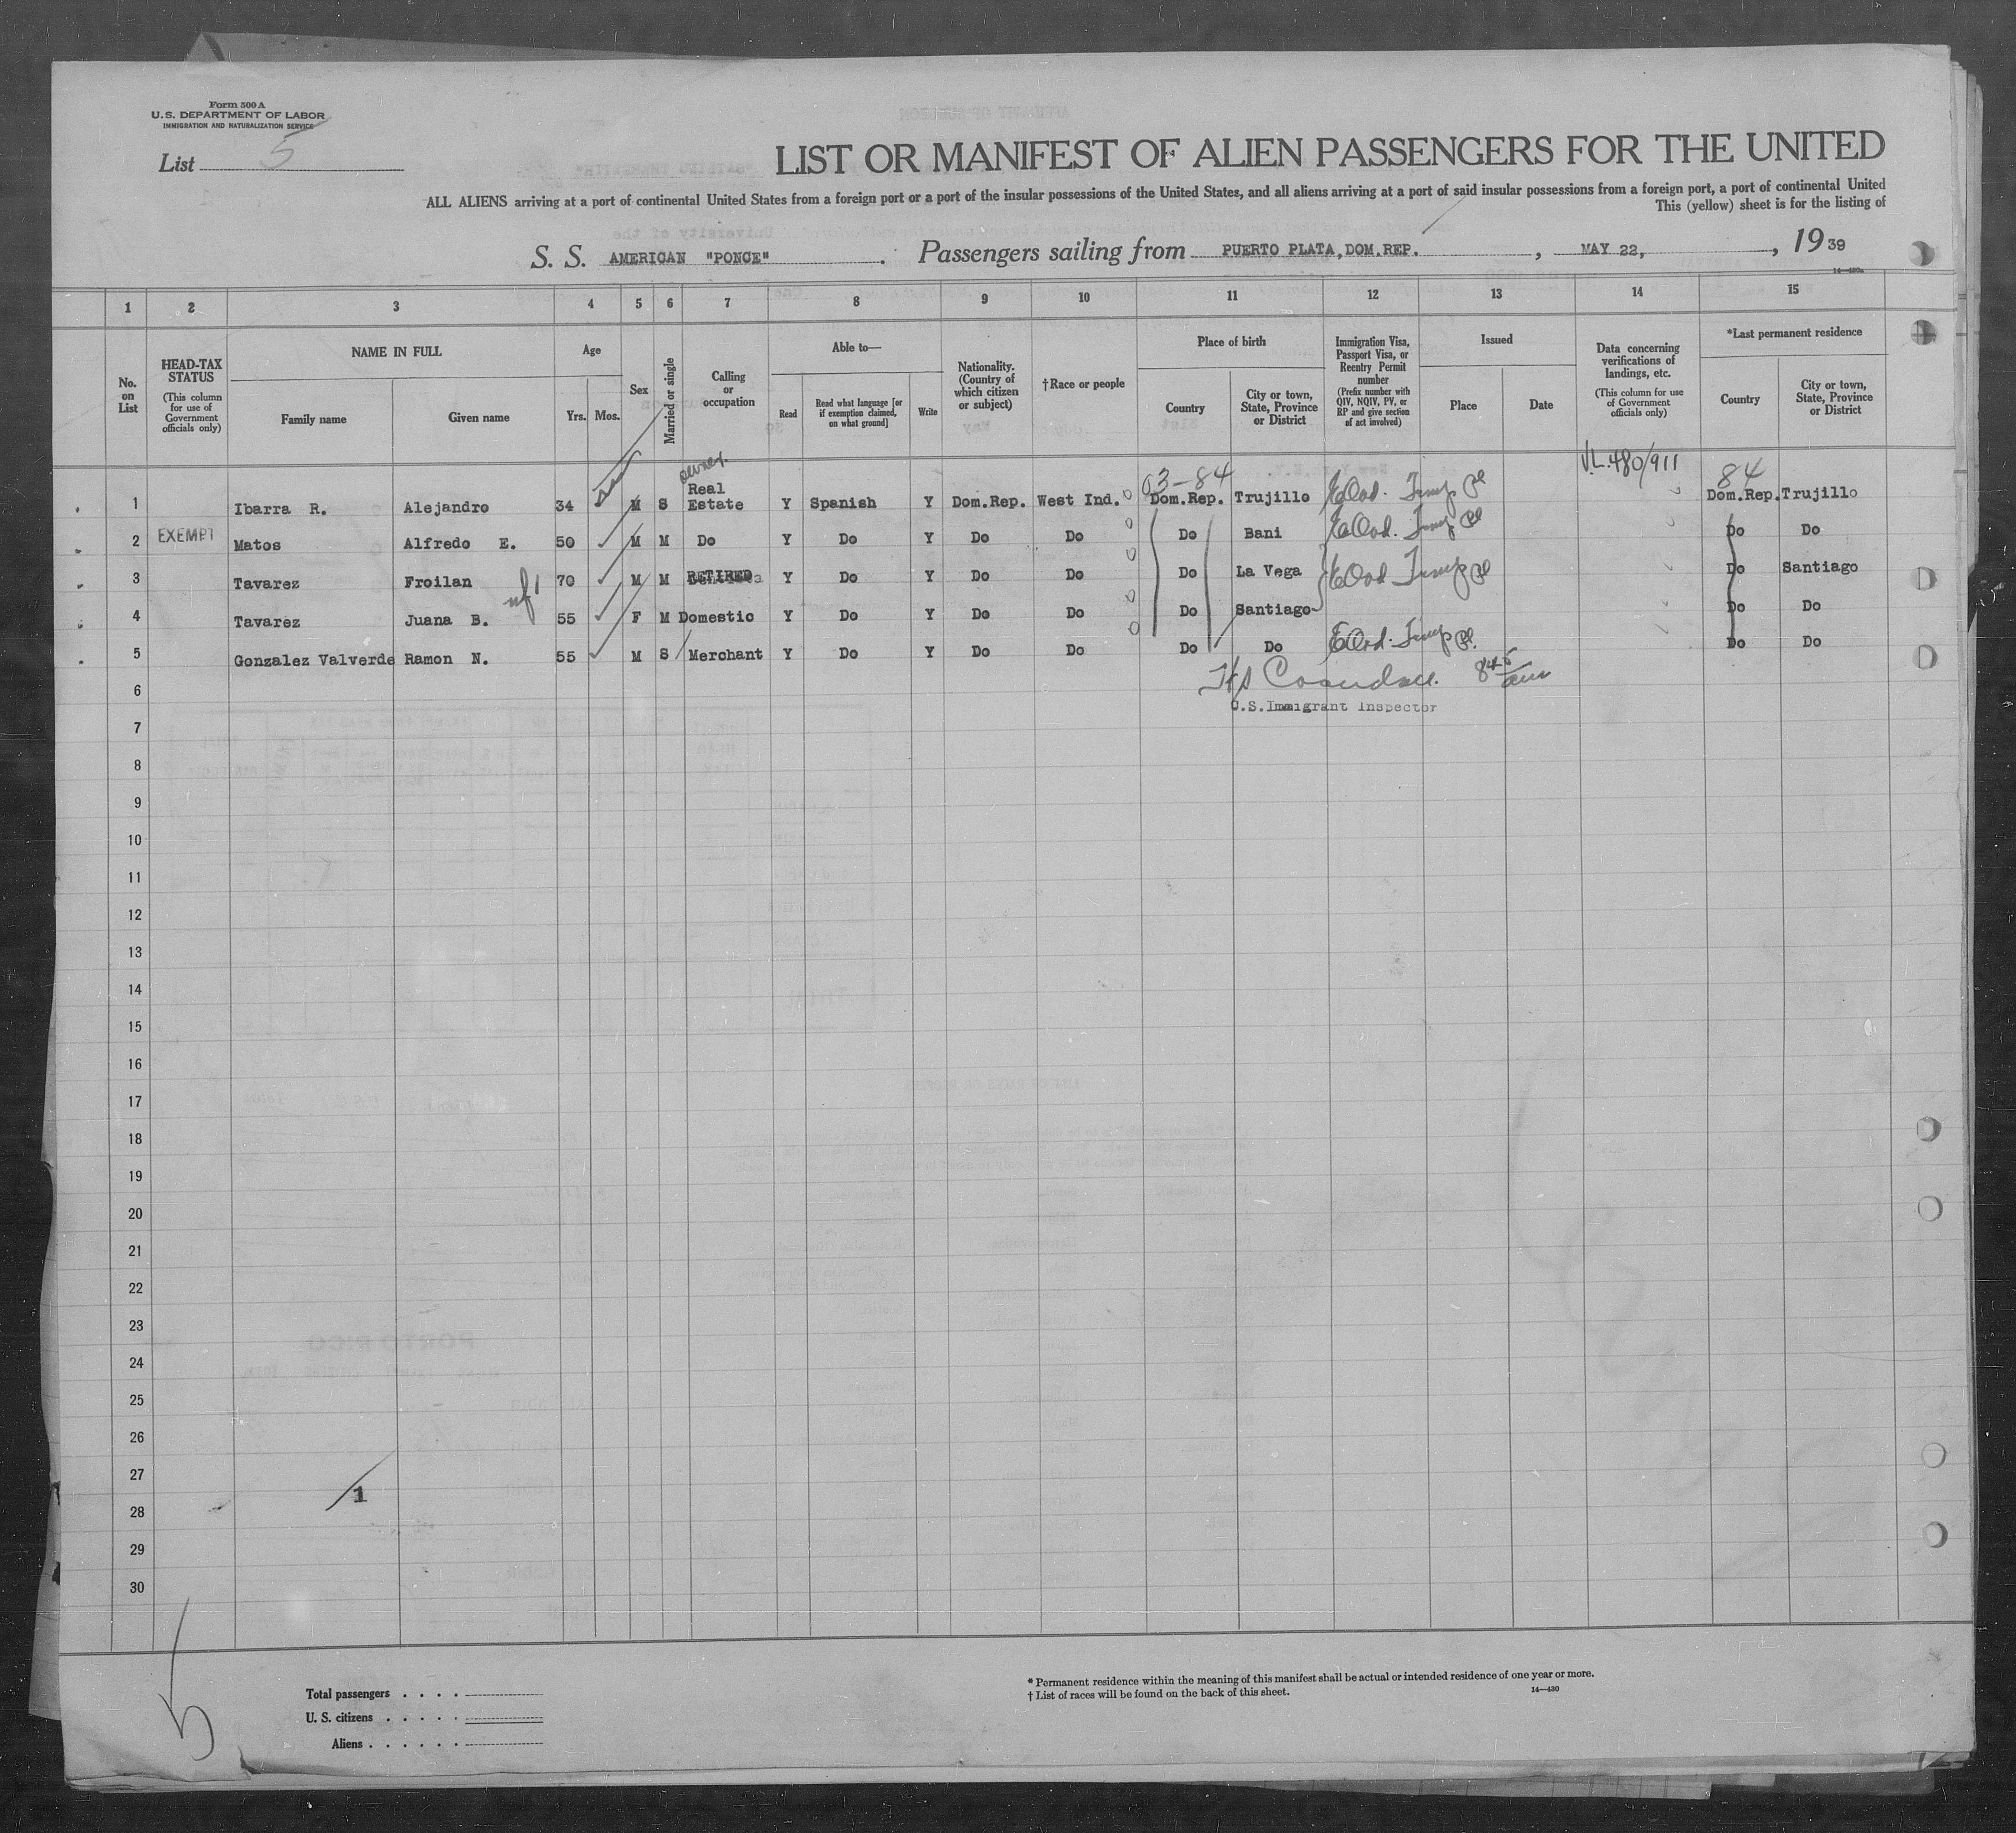 Form 500 A
U.S. DEPARTMENT OF LABOR
IMMIGRATION AND NATURALIZATION SERVICE
List 5
LIST OR MANIFEST OF ALIEN PASSENGERS FOR THE UNITED
ALL ALIENS arriving at a port of continental United States from a foreign port or a port of the insular possessions of the United States, and all aliens arriving at a port of said insular possessions from a foreign port, a port of continental United
This (yellow) sheet is for the listing of
S. S. AMERICAN "PONCE" . Passengers sailing from PUERTO PLATA, DOM.REP. , MAY 22, , 19 39
14—430a
1 2 3 4 5 6 7 8 9 10 11 12 13 14 15
No. on List
HEAD-TAX STATUS
(This column for use of Government officials only)
NAME IN FULL
Family name
Given name
Age
Yrs. Mos.
Sex
Married or single
Calling or occupation
Able to—
Read
Read what language [or if exemption claimed, on what ground]
Write
Nationality. (Country of which citizen or subject)
†Race or people
Place of birth
Country
City or town, State, Province or District
Immigration Visa, Passport Visa, or Reentry Permit number
(Prefix number with QIV, NQIV, PV, or RP and give section of act involved)
Issued
Place
Date
Data concerning verifications of landings, etc.
(This column for use of Government officials only)
*Last permanent residence
Country
City or town, State, Province or District
V.L.480/911
03-84
84
1 Ibarra R. Alejandro 34 M S Real Estate Y Spanish Y Dom.Rep. West Ind. Dom.Rep. Trujillo Dom.Rep. Trujillo
2 EXEMPT Matos Alfredo E. 50 M M Do Y Do Y Do Do Do Bani Do Do
3 Tavarez Froilan 70 M M RETIRED Y Do Y Do Do Do La Vega Do Santiago
4 Tavarez Juana B. 55 F M Domestic Y Do Y Do Do Do Santiago Do Do
5 Gonzalez Valverde Ramon N. 55 M S Merchant Y Do Y Do Do Do Do Do Do
U.S.Immigrant Inspector
6
7
8
9
10
11
12
13
14
15
16
17
18
19
20
21
22
23
24
25
26
27
1
28
29
30
5
Total passengers . . . .
U. S. citizens . . . . .
Aliens . . . . . .
* Permanent residence within the meaning of this manifest shall be actual or intended residence of one year or more.
† List of races will be found on the back of this sheet.
14—430